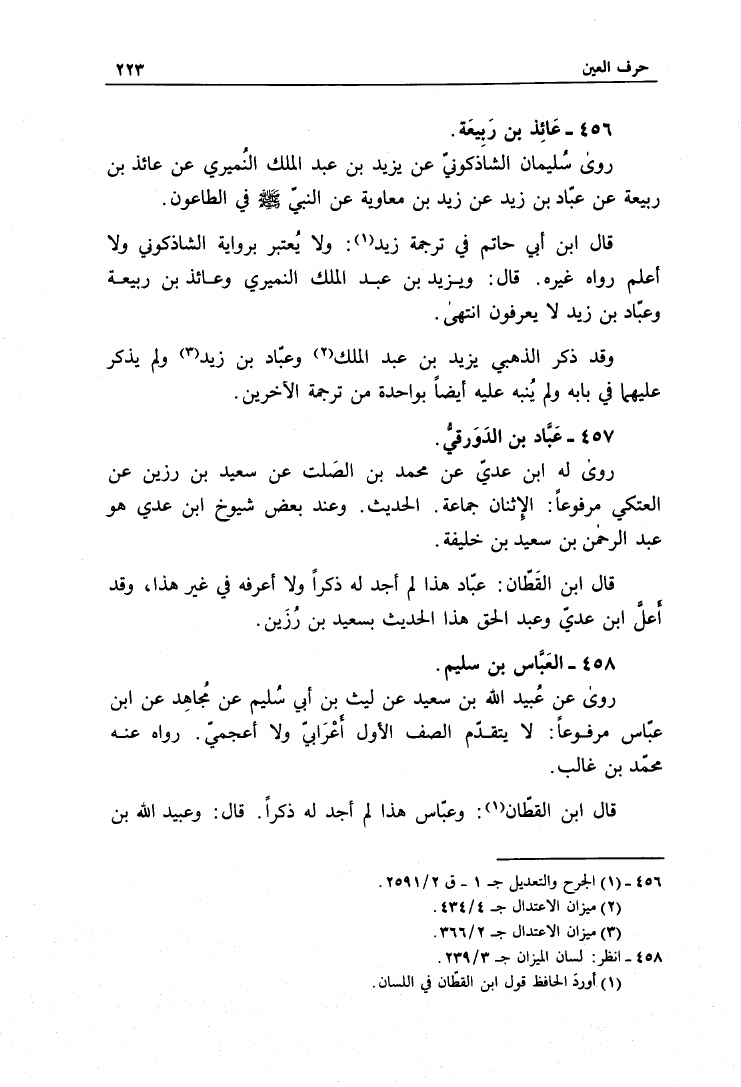 حرف العين ٢٢٣
٤٥٦ - عَائِذ بن رَبِيعَة.
روىٰ سُليمان الشاذكونيّ عن يزيد بن عبد الملك النُميري عن عائذ بن
ربيعة عن عبّاد بن زيد عن زيد بن معاوية عن النبيّ ﷺ في الطاعون.
قال ابن أبي حاتم في ترجمة زيد(١): ولا يُعتبر برواية الشاذكوني ولا
أعلم رواه غيره. قال: ويزيد بن عبد الملك النميري وعائذ بن ربيعة
وعبّاد بن زيد لا يعرفون انتهىٰ.
وقد ذكر الذهبي يزيد بن عبد الملك(٢) وعبّاد بن زيد(٣) ولم يذكر
عليهما في بابه ولم يُنبه عليه أيضاً بواحدة من ترجمة الآخرين.
٤٥٧ - عَبَّاد بن الدَوَرقيُّ.
روىٰ له ابن عديّ عن محمد بن الصَلت عن سعيد بن رزين عن
العتكي مرفوعاً: الإثنان جماعة. الحديث. وعند بعض شيوخ ابن عدي هو
عبد الرحمٰن بن سعيد بن خليفة.
قال ابن القَطّان: عبّاد هذا لم أجد له ذكراً ولا أعرفه في غير هذا، وقد
أَعلَّ ابن عديّ وعبد الحق هذا الحديث بسعيد بن رُزَين.
٤٥٨ - العَبَّاس بن سليم.
روىٰ عن عُبيد الله بن سعيد عن ليث بن أبي سُليم عن مُجاهِد عن ابن
عبّاس مرفوعاً: لا يتقدّم الصف الأول أَعْرَابيّ ولا أعجميّ. رواه عنه
محمّد بن غالب.
قال ابن القطّان(١): وعبّاس هذا لم أجد له ذكراً. قال: وعبيد الله بن
٤٥٦ - (١) الجرح والتعديل جـ ١ - ق ٢٥٩١/٢.
(٢) ميزان الاعتدال جـ ٤٣٤/٤.
(٣) ميزان الاعتدال جـ ٣٦٦/٢.
٤٥٨ - انظر: لسان الميزان جـ ٢٣٩/٣.
(١) أوردَ الحافظ قول ابن القطّان في اللسان.